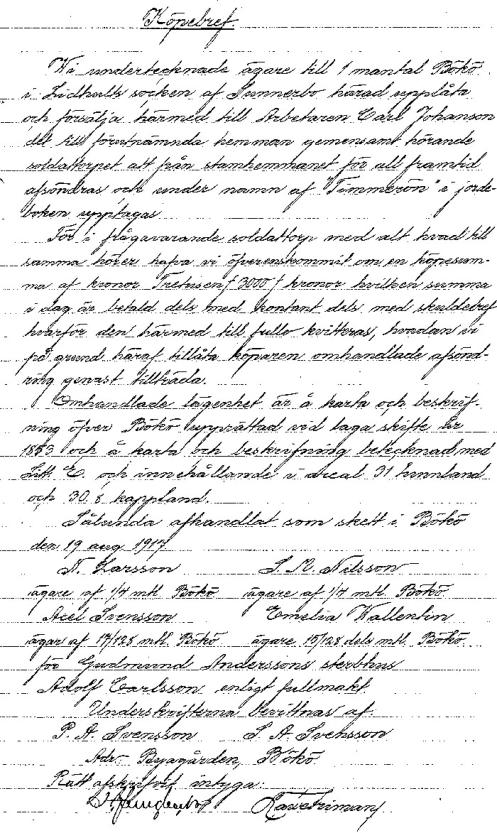 Köpebref.
Wi undertecknade ägare till 1 mantal Bökö
i Lidhults socken af Sunnerbo härad upplåta
och försälja härmed till Arbetaren Carl Johanson
det till förutnämnda hemman gemensamt hörande
soldattorpet att från stamhemmanet för all framtid
afsöndras och under namn af "Timmerön" i jorde-
boken upptagas.
För i frågavarande soldattorp med alt hvad till
samma hörer hafva vi öfverenskommit om en köpesum-
ma af kronor Tretusen /3000/ kronor hvilken summa
i dag är betald dels med kontant dels med skuldebref
hvarför den härmed till fullo kvitteras, hvadan vi
på grund häraf tillåta köparen omhandlade afsönd-
ring genast tillträda.
Omhandlade lägenhet är å karta och beskrif-
ning öfver Bökö upprättad vid laga skifte år
1883 och å karta och beskrifning betecknad med
Litt. E. och innehållande i areal 31 tunnland
och 30.8 kappland.
Sålunda afhandlat som skett i Bökö
den 19 aug 1917
N. Larsson S. N. Nilsson
ägare af 1/4 mtl. Bökö ägare af 1/4 mtl. Bökö
Axel Svensson Emelia Wallentin
ägar af 17/128 mtl. Bökö ägare 15/128 dels mtl. Bökö
för Gudmund Anderssons sterbhus
Adolf Carlsson enligt fullmakt.
Underskrifterna bevittnas af
P. A. Svensson S. A. Svensson
Adr. Byagården, Bökö.
Rätt afskrifvet intyga: